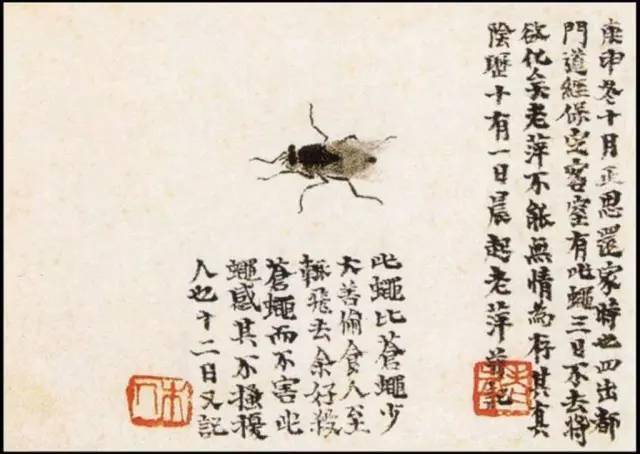 庚申冬十月正思還家時也四出都
門道經保定客室有此蠅三日不去將
欲化矣老萍不能無情為存其真
陰曆十有一日晨起老萍并記
此蠅比蒼蠅少
大善偷食人至
輒飛去余好殺
蒼蠅而不害此
蠅感其不搔擾
人也十二日又記
木人